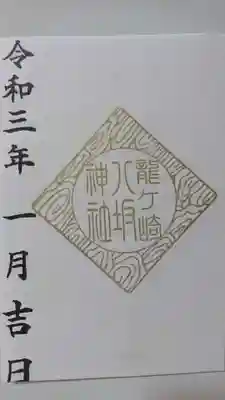 龍ケ崎
八坂
神社
令和三年 一月吉日